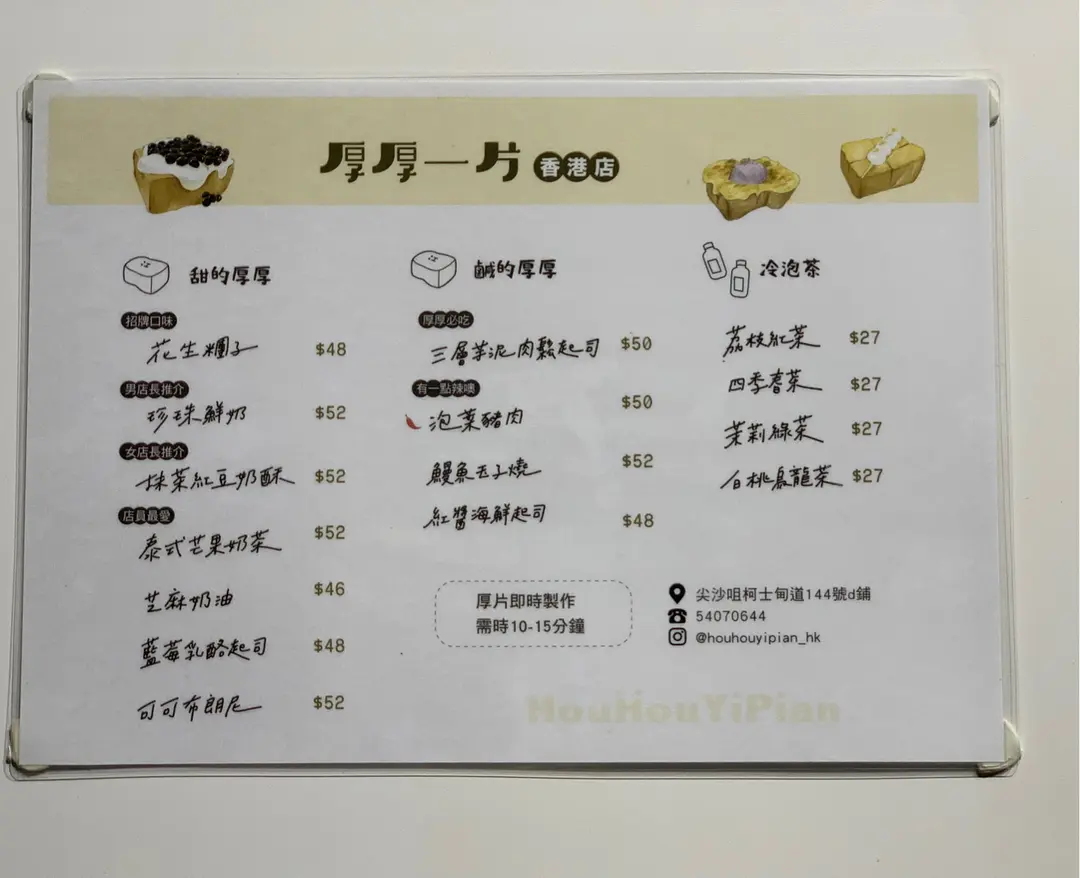 厚厚一片 香港店
甜的厚厚
招牌口味
花生糰子 $48
男店長推介
珍珠鮮奶 $52
女店長推介
抹茶紅豆奶酥 $52
店員最愛
泰式芒果奶茶 $52
芝麻奶油 $46
藍莓乳酪起司 $48
可可布朗尼 $52
鹹的厚厚
厚厚必吃
三層芋泥肉鬆起司 $50
有一點辣噢
泡菜豬肉 $50
鰻魚玉子燒 $52
紅醬海鮮起司 $48
冷泡茶
荔枝紅茶 $27
四季春茶 $27
茉莉綠茶 $27
白桃烏龍茶 $27
厚片即時製作
需時10-15分鐘
尖沙咀柯士甸道144號d鋪
54070644
@houhouyipian_hk
HouHouYiPian